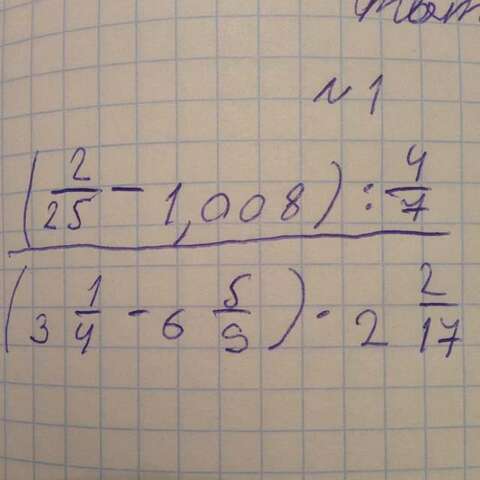 № 1
(2/25 - 1,008) : 4/7
(3 1/4 - 6 5/9) · 2 2/17